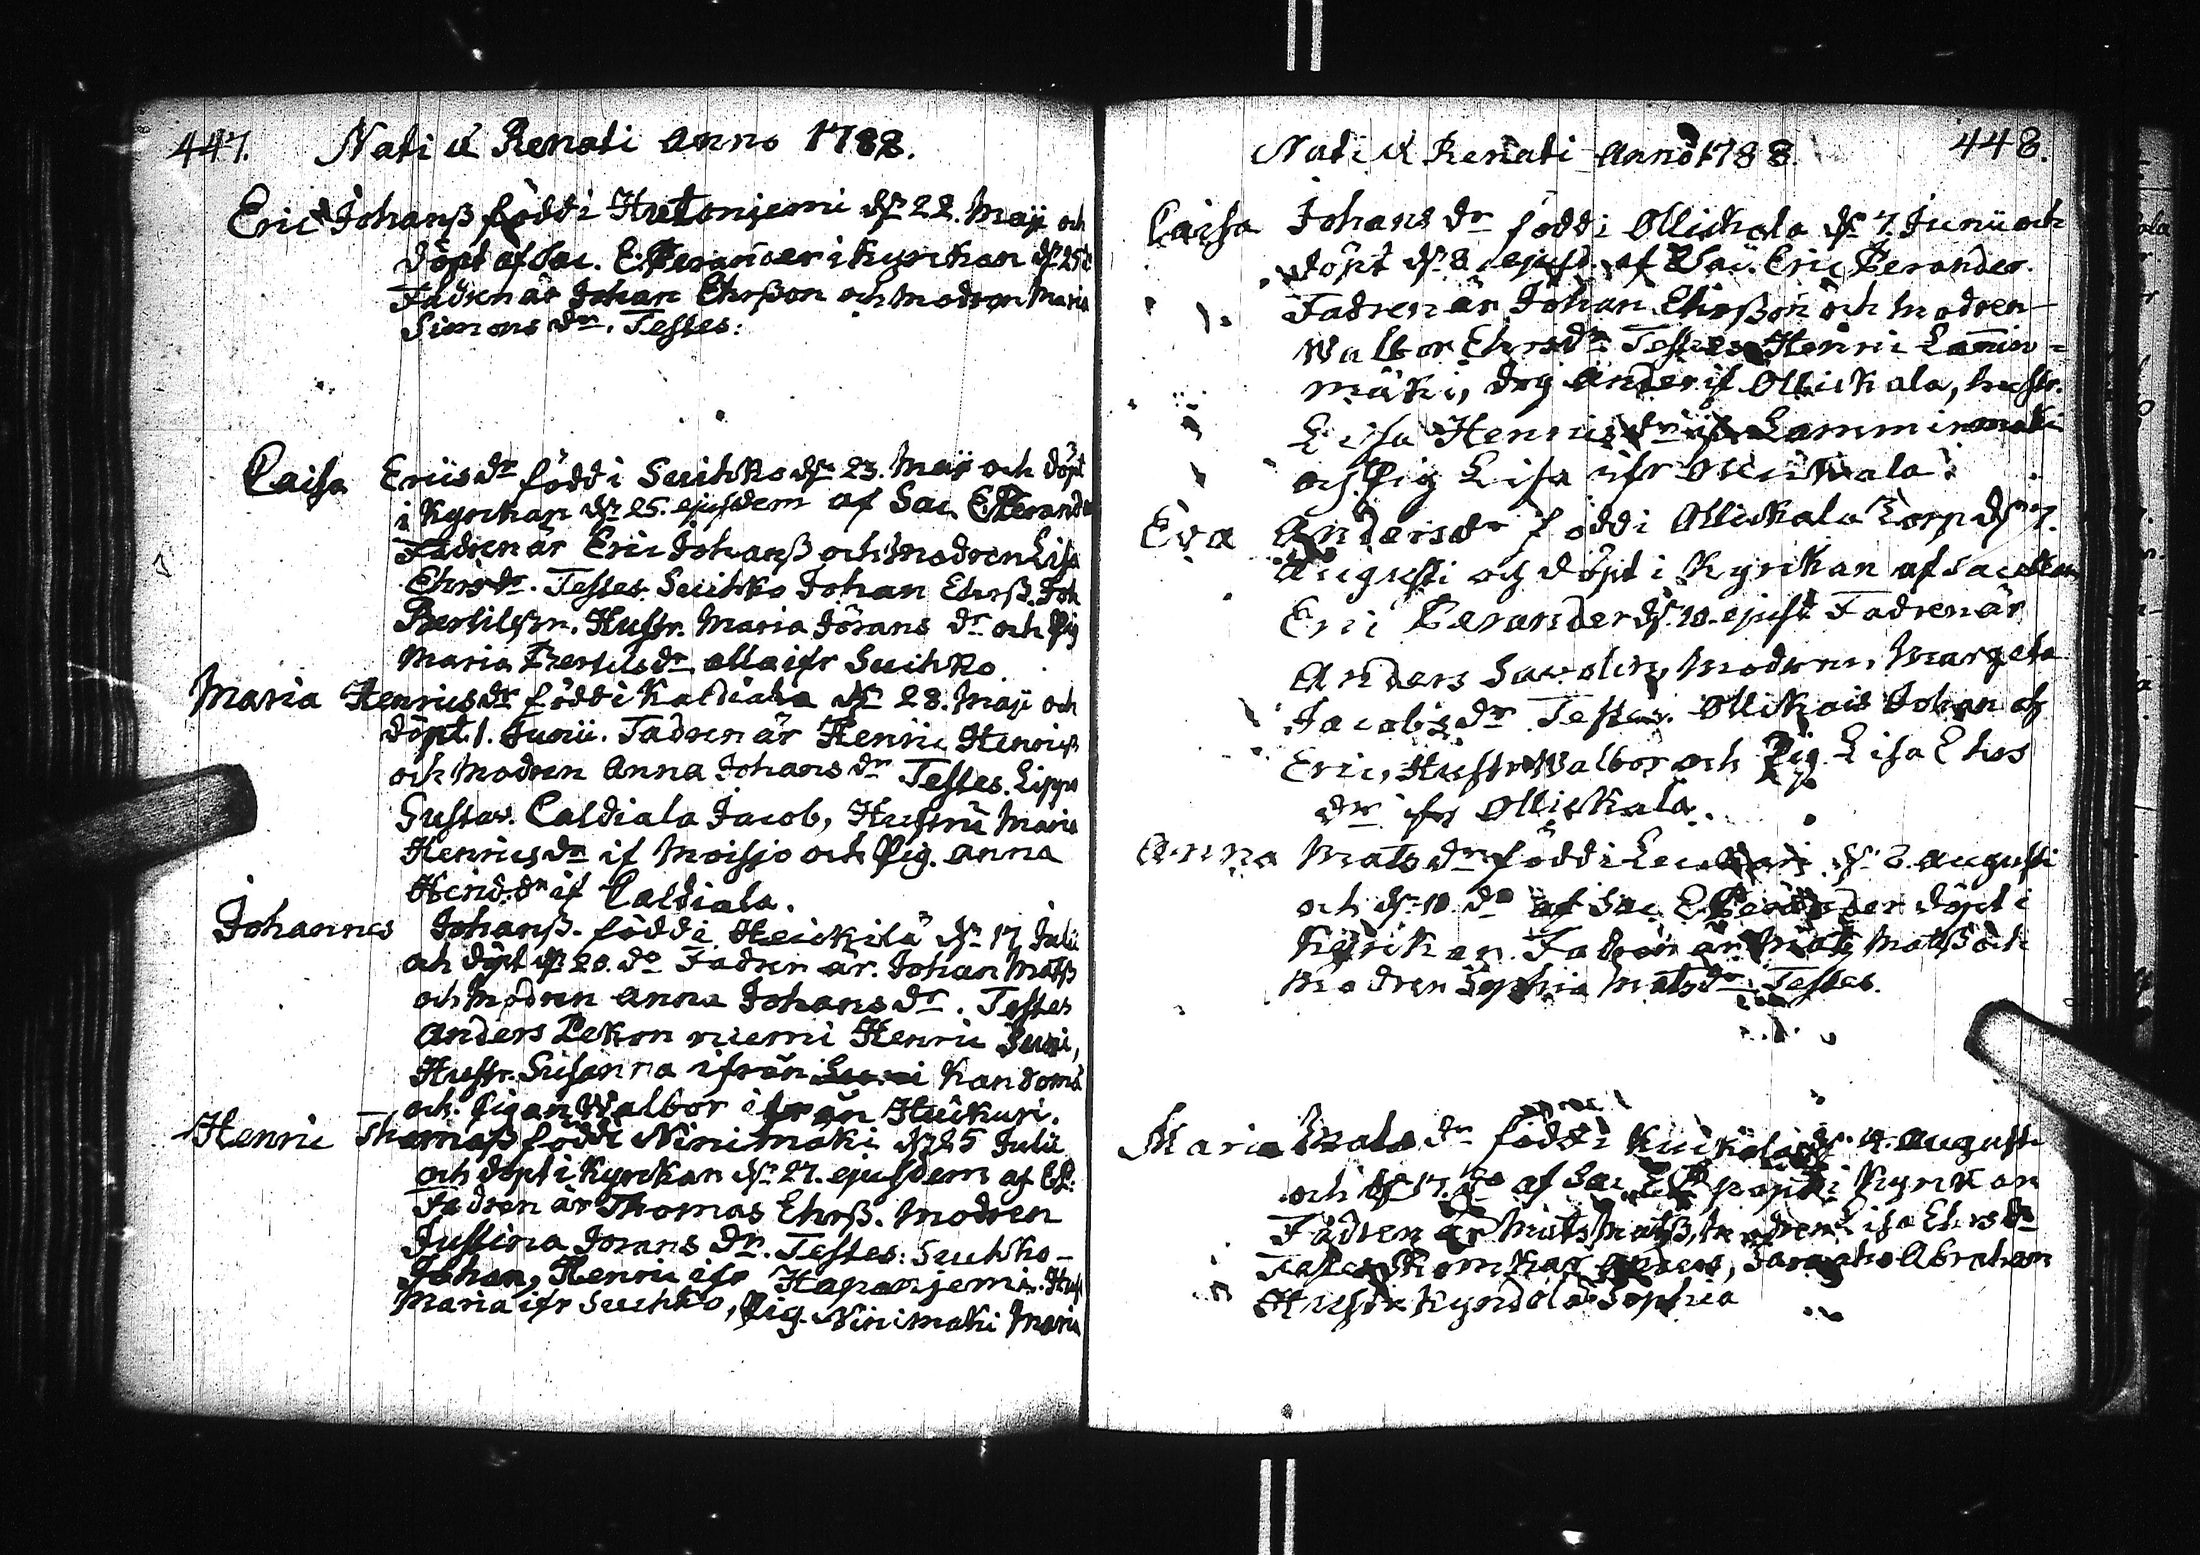 447. Nati & Renati Anno 1788.
Eric Johanß född i Hietoniemi dn 22. Maji och
döpt af Sac. E. Perander i Kyrckan dn 25
Fadren är Johan Ehrsson och modren Maria
Simons dr. Testes:
Caisa Erics dr född i Suihko dn 23. Maji och döpt
i Kyrckan dn 25. ejusdem af Sac. E. Perander
Fadren är Eric Johanß och modren Lisa
Ehrs dr. Testes. Suihko Johan Ehrß. Joh
Bertilsson. Hustr. Maria Jörans dr och Pig
Maria Bertils dr alla ifr Suihko.
Maria Henrics dr född i Kaldiala dn 28. Maji och
döpt 1. Junii. Fadren är Henric Henricß
och modren Anna Johans dr Testes. Lippa
Gustav. Caldiala Jacob, Hustru Maria
Henrics dr if Moisio och Pig. Anna
Henr. dr if Caldiala.
Johannes Johanß. född i Heickilä dn 17 Julii
och döpt dn 20. do Fadren är. Johan Matß
och modren Anna Johans dr. Testes
Anders Pekon niemi Henric
Hustr. Susanna ifrån Kandoma
och Pigan Walbor ifrån
Henric Thomaß född i Ninimäki dn 25 Julii
och döpt i Kyrckan dn 27. ejusdem af EP:
Fadren är Thomas Ehrß. modren
Justina Jörans dr. Testes: Suihko-
Johan, Henric ifr Hapaniemi. Hustr
Maria ifr Suihko, Pig. Ninimäki Maria
Nati & Renati Anno 1788. 448.
Caisa Johans dr född i Ollickala dn 7. Junii och
döpt dn 8 ejusd. af Sac. Eric Perander.
Fadren är Johan Ehrsson och modren
Walbor Ehrs dr. Testes Henric Lamin-
mäki, Drg Anders if Ollickala, hustr.
Lisa Henrics dr ifr Lamminmäki
och Pig Lisa ifr Ollickala.
Eva Anders dr född i Ollickala Torp dn 7.
Augusti och döpt i Kyrckan af Sac
Eric Perander dn 10. ejusd Fadren är
Anders Savolin, modren, Margeta
Jacobs dr Testes. Ollikais Johan och
Eric, Hustr Walbor och Pig Lisa Ehrs
dr ifr Ollickala.
Anna Mats dr född i dn 8. Augusti
och dn 10. do af Sac. E. Perander döpt i
Kyrckan. Fadren är Mats Matß och
modren Sophia Mats dr. Testes.
Maria Mats dr född i Kuckola dn 14. August
och dn 17. do af Sac. EP i Kyrckan
Fadren är Mats Matß, modren Lisa Ehrs dr
Testes Anders, Abraham
Hustr. Kyndölä Sophia